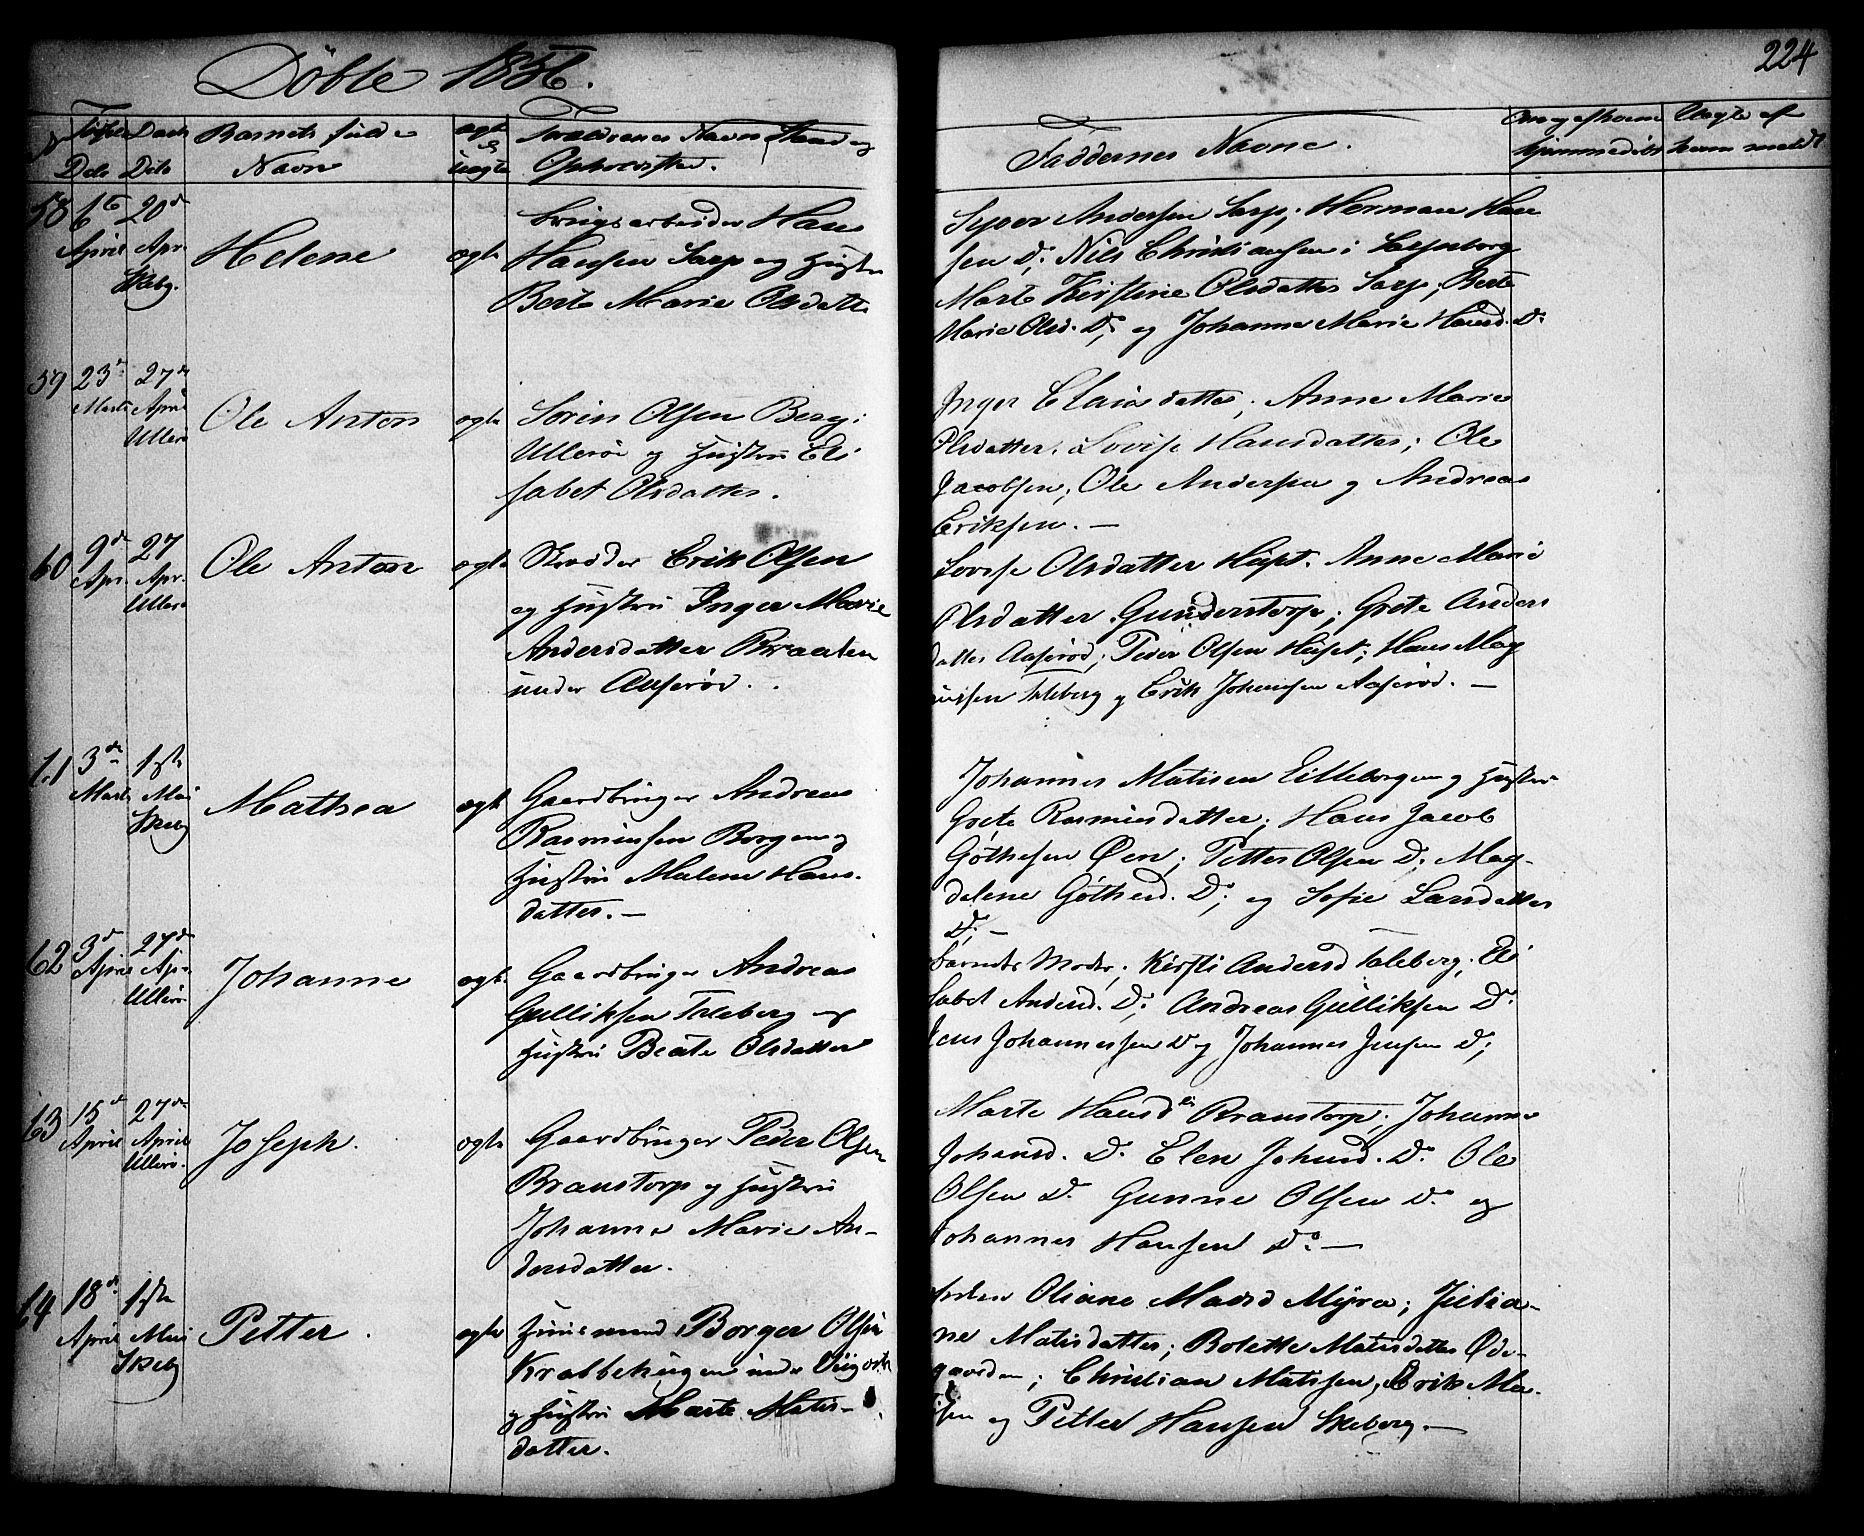 Döbte 1856.
224
Fødsels Daab Barnets fulde ægte Forældrenes Navn Stand og
Dato Dito Navn & uægte Opholdssted.
Faddernes Navne.
58 16 April 20de Apr. Skeby. Helene ægte Brugsarbeider Hans
Hansen Sarp og Hustru
Berte Marie Olsdatte
Syver Andersen Sarp; Herman Han
sen Do; Nils Christiansen i Sarpsborg
Marte Kirstine Olsdatter Sarp; Berte
Marie Olsd. Do; og Johanne Marie Hansd. Do
59 23de Marts 27de April Ullerø Ole Anton ægte Sørin Olsen Berg i
Ullerøi og Hustru Eli
sabet Olsdatter.
Inger Clausdatter; Anne Marie
Olsdatter; Lovise Hansdatter; Ole
Jacobsen; Ole Andersen og Andreas
Eriksen. —
60 9de Apr. 27 Apr. Ullerø Ole Anton ægte Skrædder Erik Olsen
og Hustru Inger Marie
Andersdatter Braaten
under Aaserød.
Lovise Olsdatter Hust. Anne Marie
Olsdatter Gunderstorp; Grete Anders
datter Aaserød; Peder Olsen Huset; Hans Mag
nussen Taleberg og Erik Johansen Aaserød. —
61 3de Marts 1ste Mai Skeby Mathea ægte Gaardbruger Andreas
Rasmussen Borgen og
Hustru Malene Hans-
datter. —
Johannes Matisen Lilleborgen og Hustru
Grete Rasmusdatter; Hans Jacob
Gøthesen Øen; Petter Olsen Do; Mag-
dalene Gøthesd. Do; og Sofie Larsdatter
Do; —
62 3de April 27de Apr. Ullerø Johanne ægte Gaardbruger Andreas
Gulliksen Taleberg og
Hustru Beate Olsdatter
Barnets Moder; Kirsti Andersd Taleberg; Eli
sabet Andersd. Do; Andreas Gulliksen Do.
Jens Johannessen Do og Johannes Jensen Do;
63 15de April 27de April Ullerø. Joseph. ægte Gaardbruger Peder Olsen
Branstorp og Hustru
Johanne Marie An-
dersdatter.
Marte Hansdtr Branstorp; Johanne
Johansd. Do. Elen Johansd. Do. Ole
Olsen Do. Gunne Olsen Do og
Johannes Hansen Do. —
64 18de April 1ste Mai Skeby Petter. ægte Huusmand Borger Olsen
Krabbehugen under
og Hustru Marte Matis-
datter.
Oliane Madsd Myra; Julia-
ne Matisdatter; Bolette Matisdatter Øde-
gaarden; Christian Matisen, Erik Ma-
tisen og Petter Hansen Skeberg. —